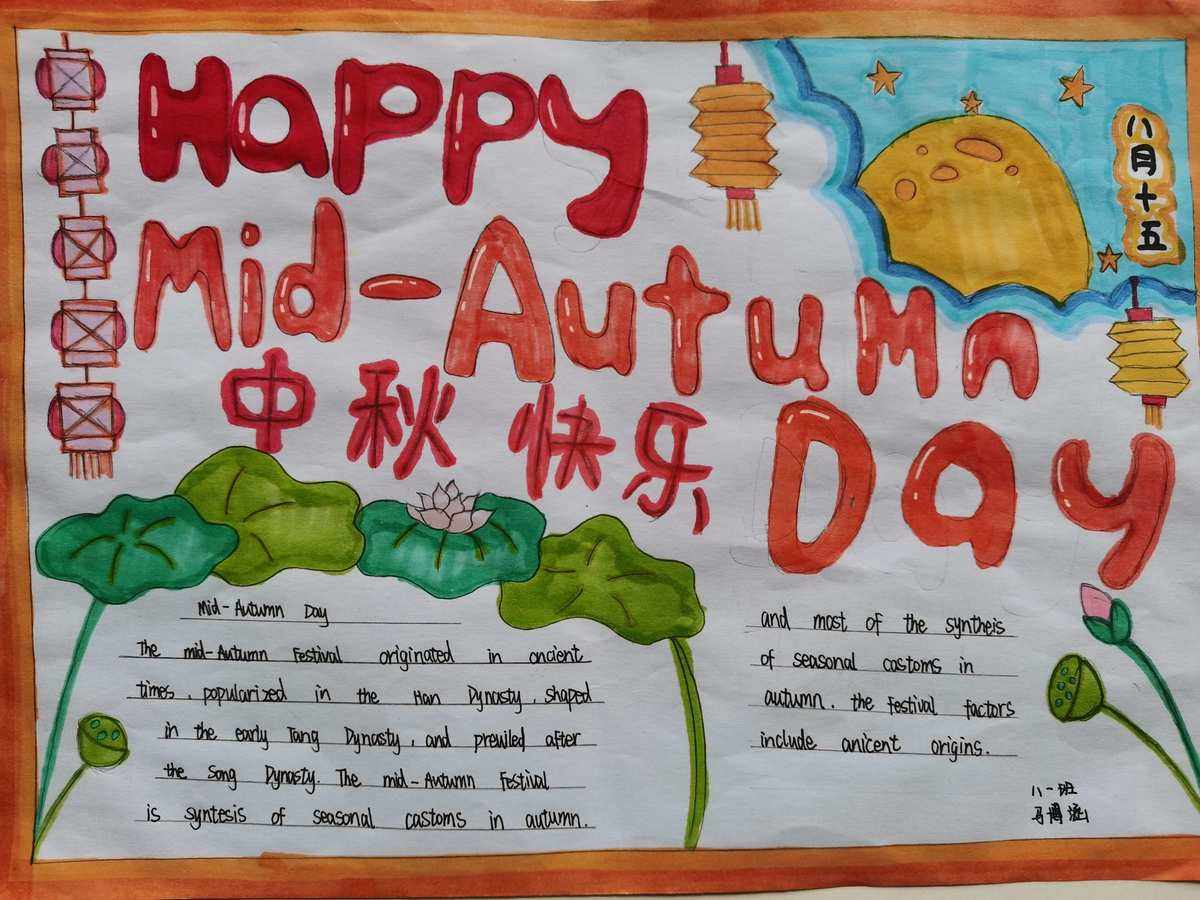 Happy
八月十五
Mid-Autumn
中秋快乐
Day
Mid-Autumn Day
The mid-Autumn Festival originated in ancient
times, popularized in the Han Dynasty, shaped
in the early Tang Dynasty, and prewiled after
the Song Dynasty. The mid-Autumn Festival
is syntesis of seasonal castoms in autumn.
and most of the syntheis
of seasonal castoms in
autumn. the festival factors
include anicent origins.
八一班
马博涵